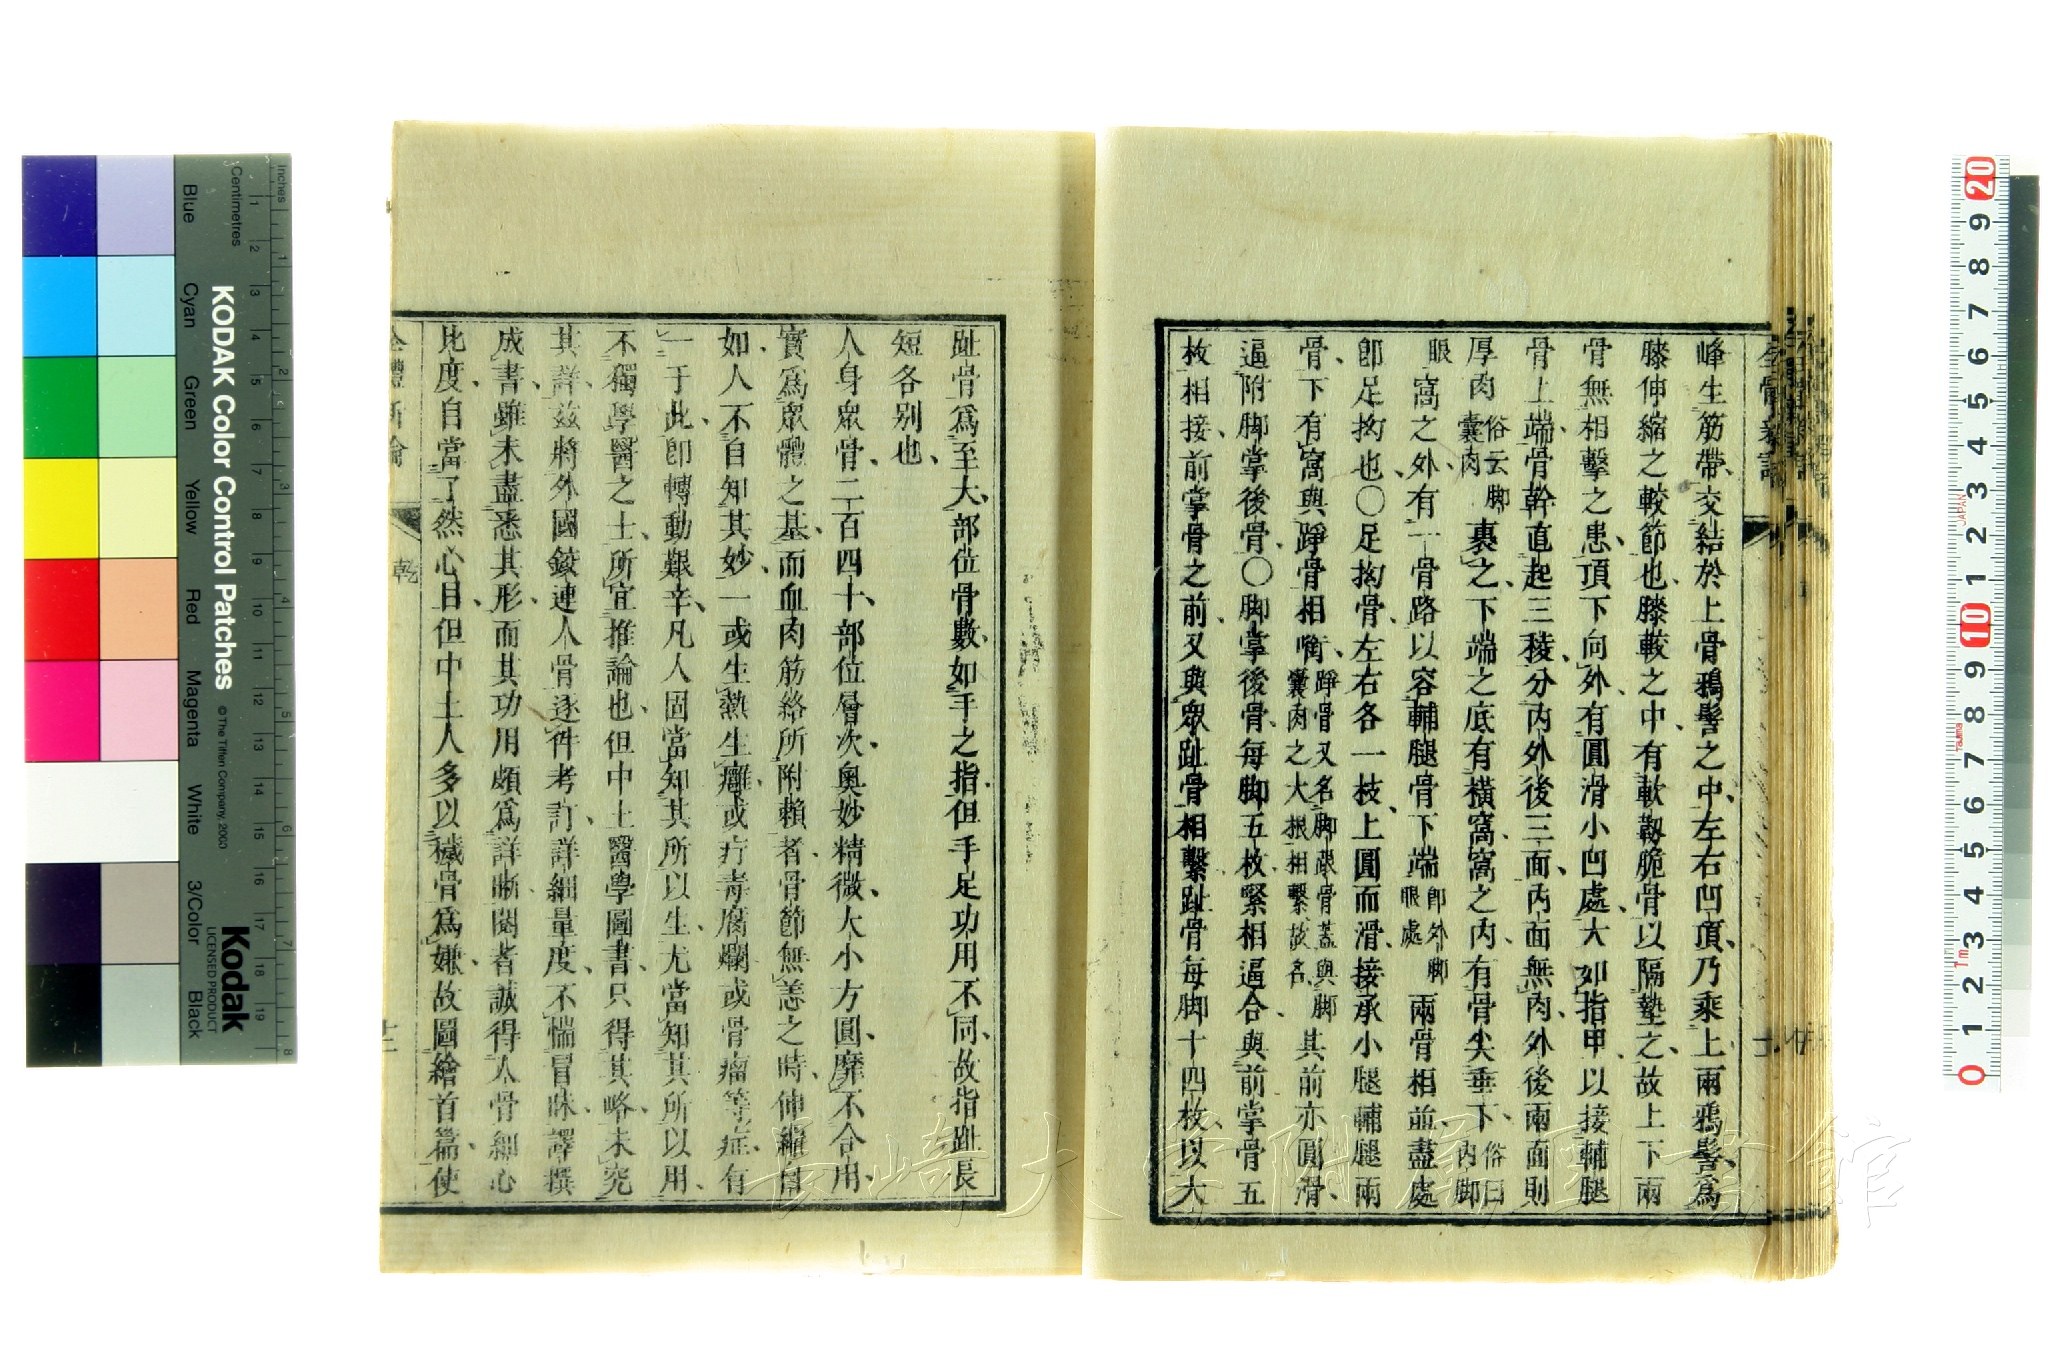 峰生筋帶、交結於上骨鴉髻之中、左右凹頂、乃乘上兩鴉髻、爲
膝伸縮之較節也、膝較之中、有軟韌脆骨、以隔墊之、故上下兩
骨無相擊之患、頂下向外、有圓滑小凹處、大如指甲、以接輔腿
骨上端、骨幹直起三稜、分內外後三面、內面無肉、外後兩面則
厚肉俗云脚囊肉裹之、下端之底有橫窩、窩之內、有骨尖垂下、俗曰內脚
眼窩之外、有一骨路以容輔腿骨下端卽外脚眼處兩骨相並、盡處
卽足拗也〇足拗骨左右各一枝、上圓而滑、接承小腿輔腿兩
骨、下有窩與踭骨相啣、踭骨又名脚跟骨蓋與脚囊肉之大根相繫故名其前亦圓滑、
逼附脚掌後骨、〇脚掌後骨、每脚五枚緊相逼合、與前掌骨五
枚相接、前掌骨之前、又與眾趾骨相繫、趾骨每脚十四枚、以大
趾骨爲至大、部位骨數、如手之指、但手足功用不同、故指趾長
短各别也、
人身眾骨、二百四十、部位層次、奧妙精微、大小方圓、靡不合用、
實爲眾體之基、而血肉筋絡所附賴者、骨節無恙之時、伸縮自
如、人不自知其妙、一或生熱生癰、或疔毒腐爛、或骨瘤等症、有
一于此、卽轉動艱辛、凡人固當知其所以生、尤當知其所以用、
不獨學醫之士、所宜推論也、但中土醫學圖書、只得其略、未究
其詳、茲將外國鉸連人骨、逐件考訂、詳細量度、不惴冒昧、譯撰
成書、雖未盡悉其形、而其功用頗爲詳晰、閱者誠得人骨細心
比度、自當了然心目、但中土人多以穢骨爲嫌、故圖繪首篇、使
全體新論
乾